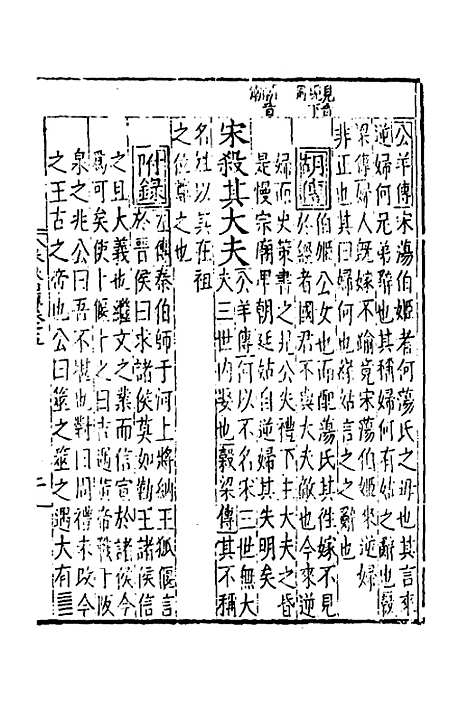 公羊傳宋蕩伯姬者何蕩氏之母也其言來
逆婦何兄弟辭也其稱婦何有姑之辭也穀
梁傳婦人既嫁不踰竟宋蕩伯姬來逆婦
非正也其曰婦何也緣姑言之之辭也
胡傳伯姬公女也而配蕩氏其往嫁不見
於經者國君不與大夫敵也今來逆
婦而史策書之見公失禮下主大夫之昏
是慢宗廟卑朝廷姑自逆婦其失明矣
宋殺其大夫公羊傳何以不名宋三世無大
夫三世內娶也穀梁傳其不稱
名姓以其在祖
之位尊之也
附錄左傳秦伯師于河上將納王狐偃言
於晉侯曰求諸侯莫如勤王諸侯信
之且大義也繼文之業而信宣於諸侯今
爲可矣使卜偃卜之曰吉遇黃帝戰于阪
泉之兆公曰吾不堪也對曰周禮未改今
之王古之帝也公曰筮之筮之遇大有䷍